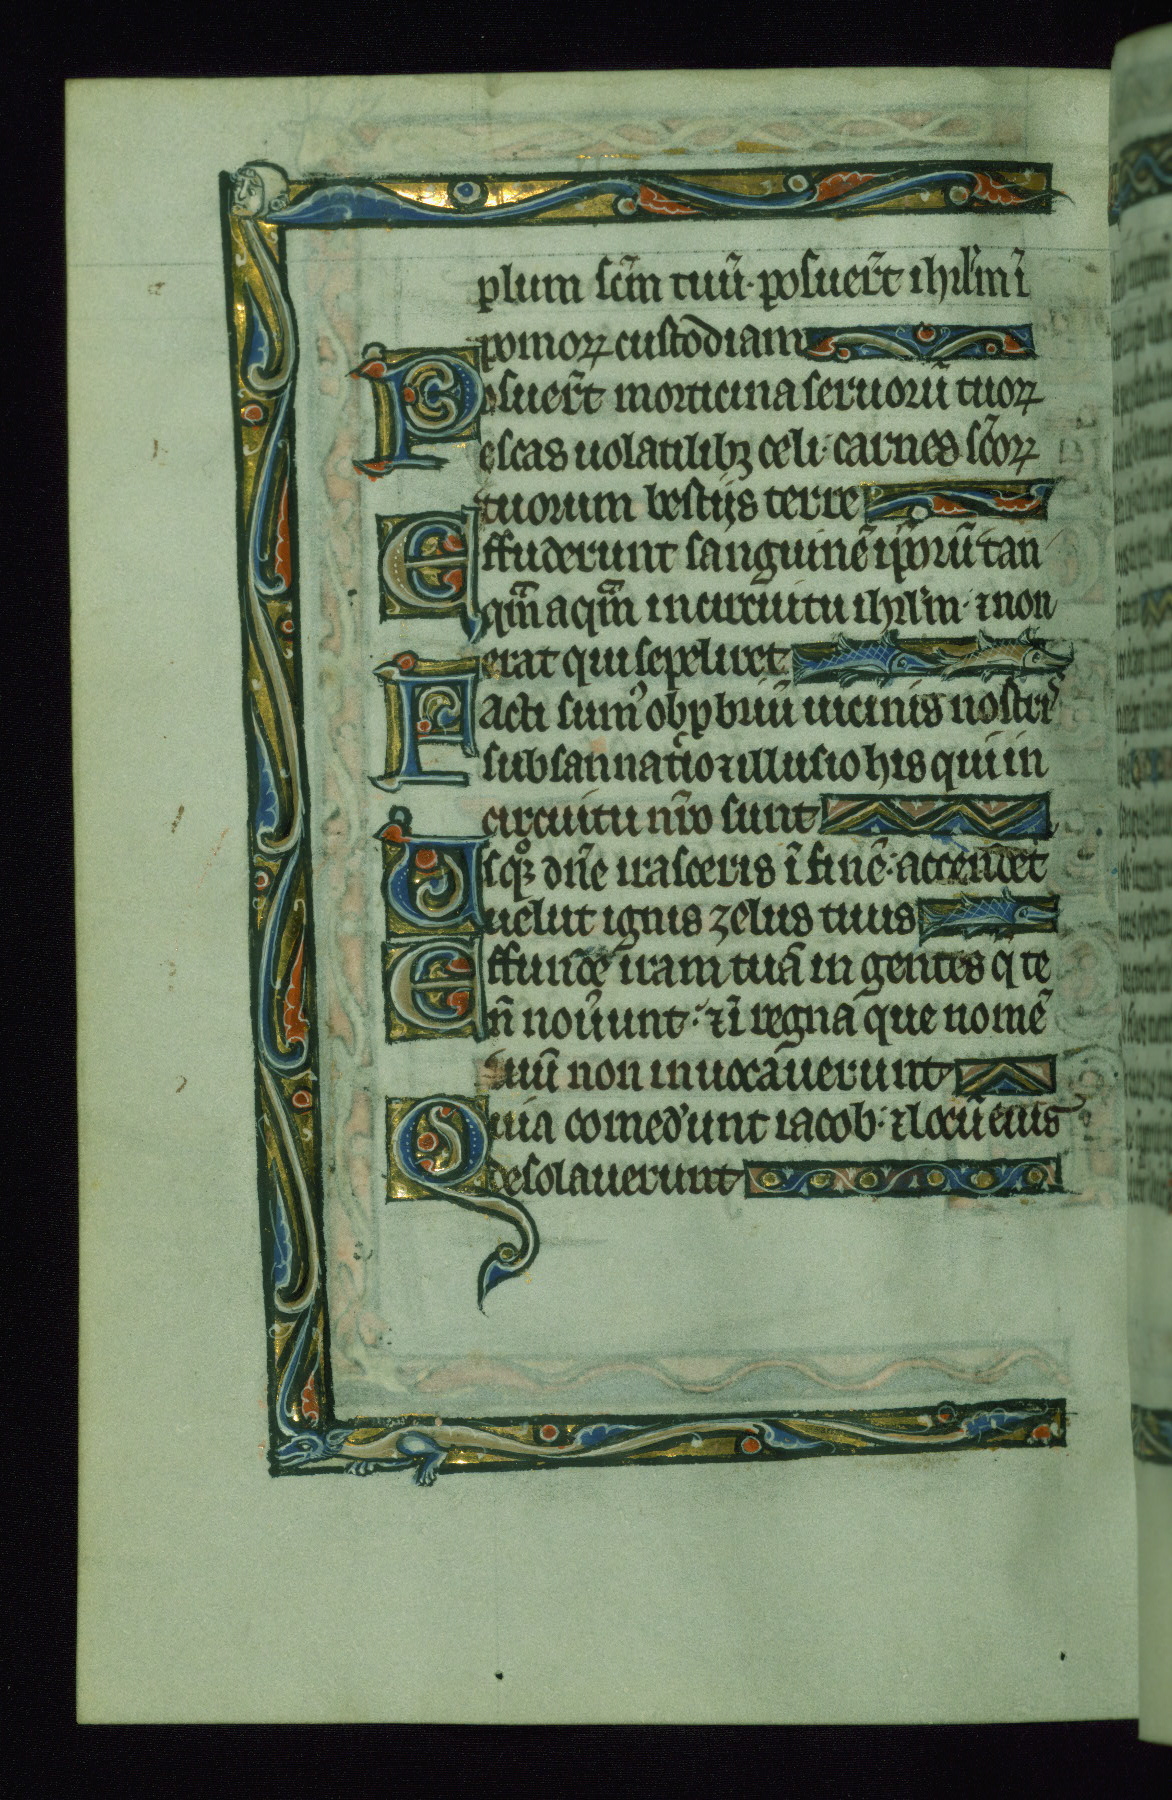 plum scm̄ tuū· posuer̄t ihrl̄m ī
pomoꝝ custodiam
Posuer̄t morticina seruorū tuoꝝ
escas uolatilibꝫ celi· carnes sc̄oꝝ
tuorum bestijs terre
Effuderunt sanguinē ip̄orū tan
qm̄ aqm̄ in circuitu ihrl̄m· ⁊ non
erat qui sepeliret
Facti sumꝰ obꝓbriū uicinis nostris
subsannatio ⁊ illusio his qui in
circuitu nr̄o sunt
Usqꝫ dn̄e irasceris ī finē· accendet᷑
uelut ignis zelus tuus
Effunde iram tuā in gentes q te
n̄ nouͥunt· ⁊ ī regna que nomē
tuū non inuocauerunt
Quia comed͛unt iacob· ⁊ locū eius
desolauerunt